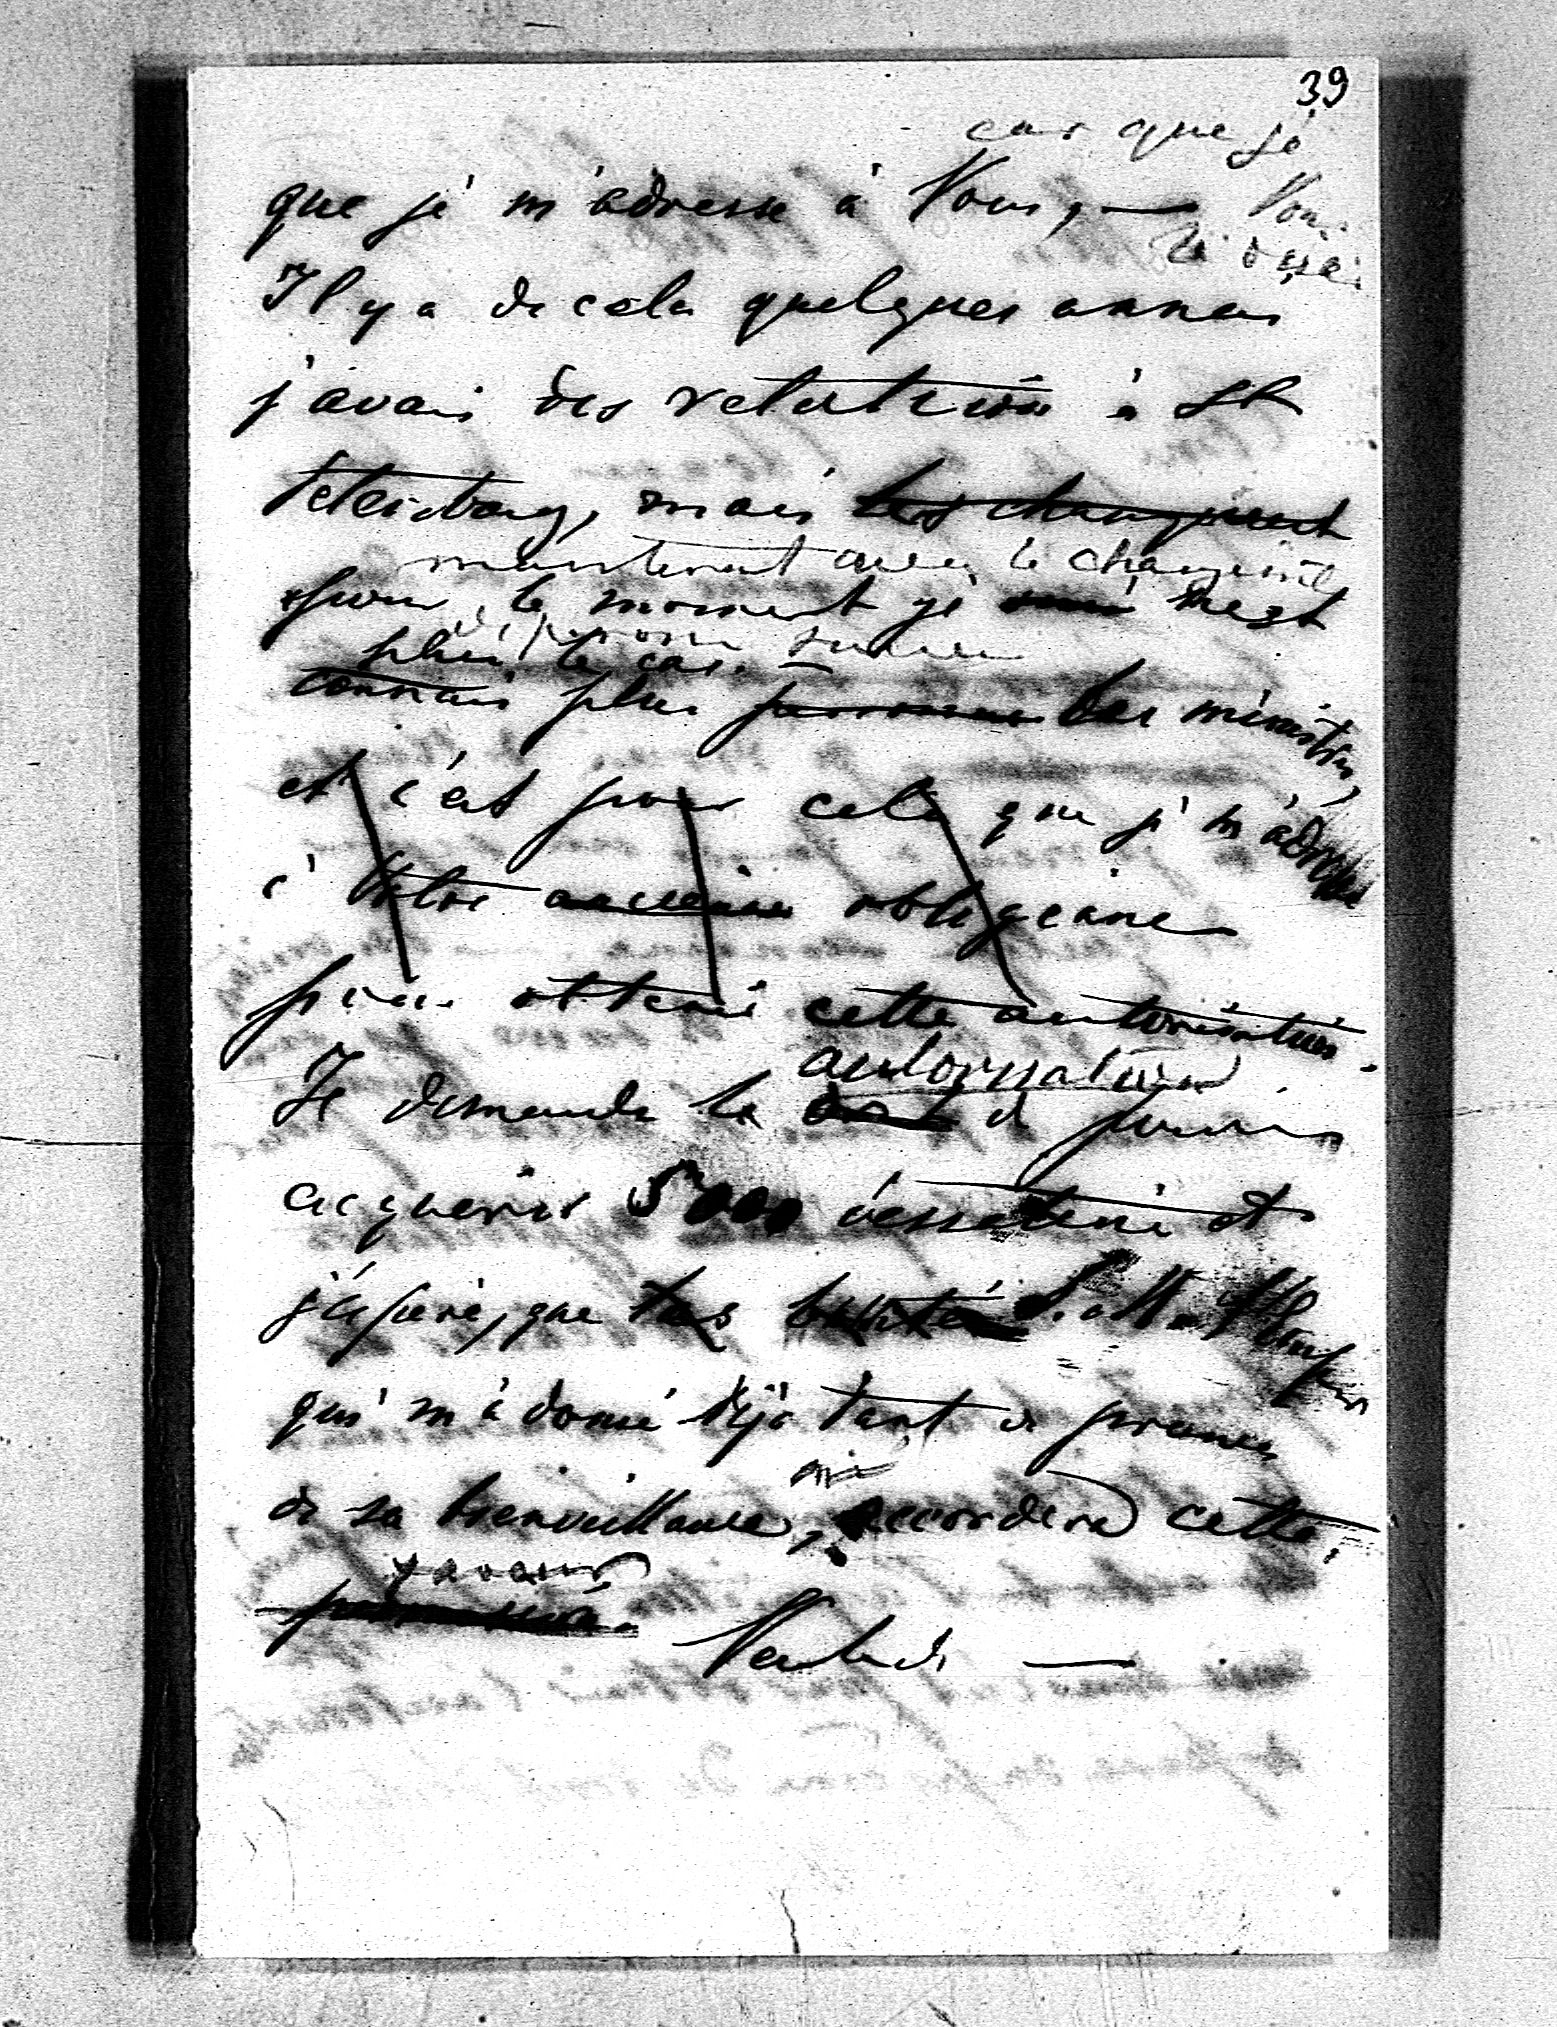 39
car que je
que je m'adresse à Vous, —
Vous
Il y a de cela quelques annees
j'avais des relations à St
Petersbourg, mais les changement
maintenant avec le changement
pour le moment je n'est
plus le cas. —
connais plus personne les ministres,
et c'est pour cela que je m'adresse
à Votre ancienne obligeance
pour obtenir cette autorisation.
autorisation
Je demande la de pouvoir
acquerir 5000 dessetini et
j'éspere, que les bontés S. M. l'Empereur
qui m'à donné déjà tant de preuves
de sa bienveillance, accordera cette
faveur
permission.
Veuled —